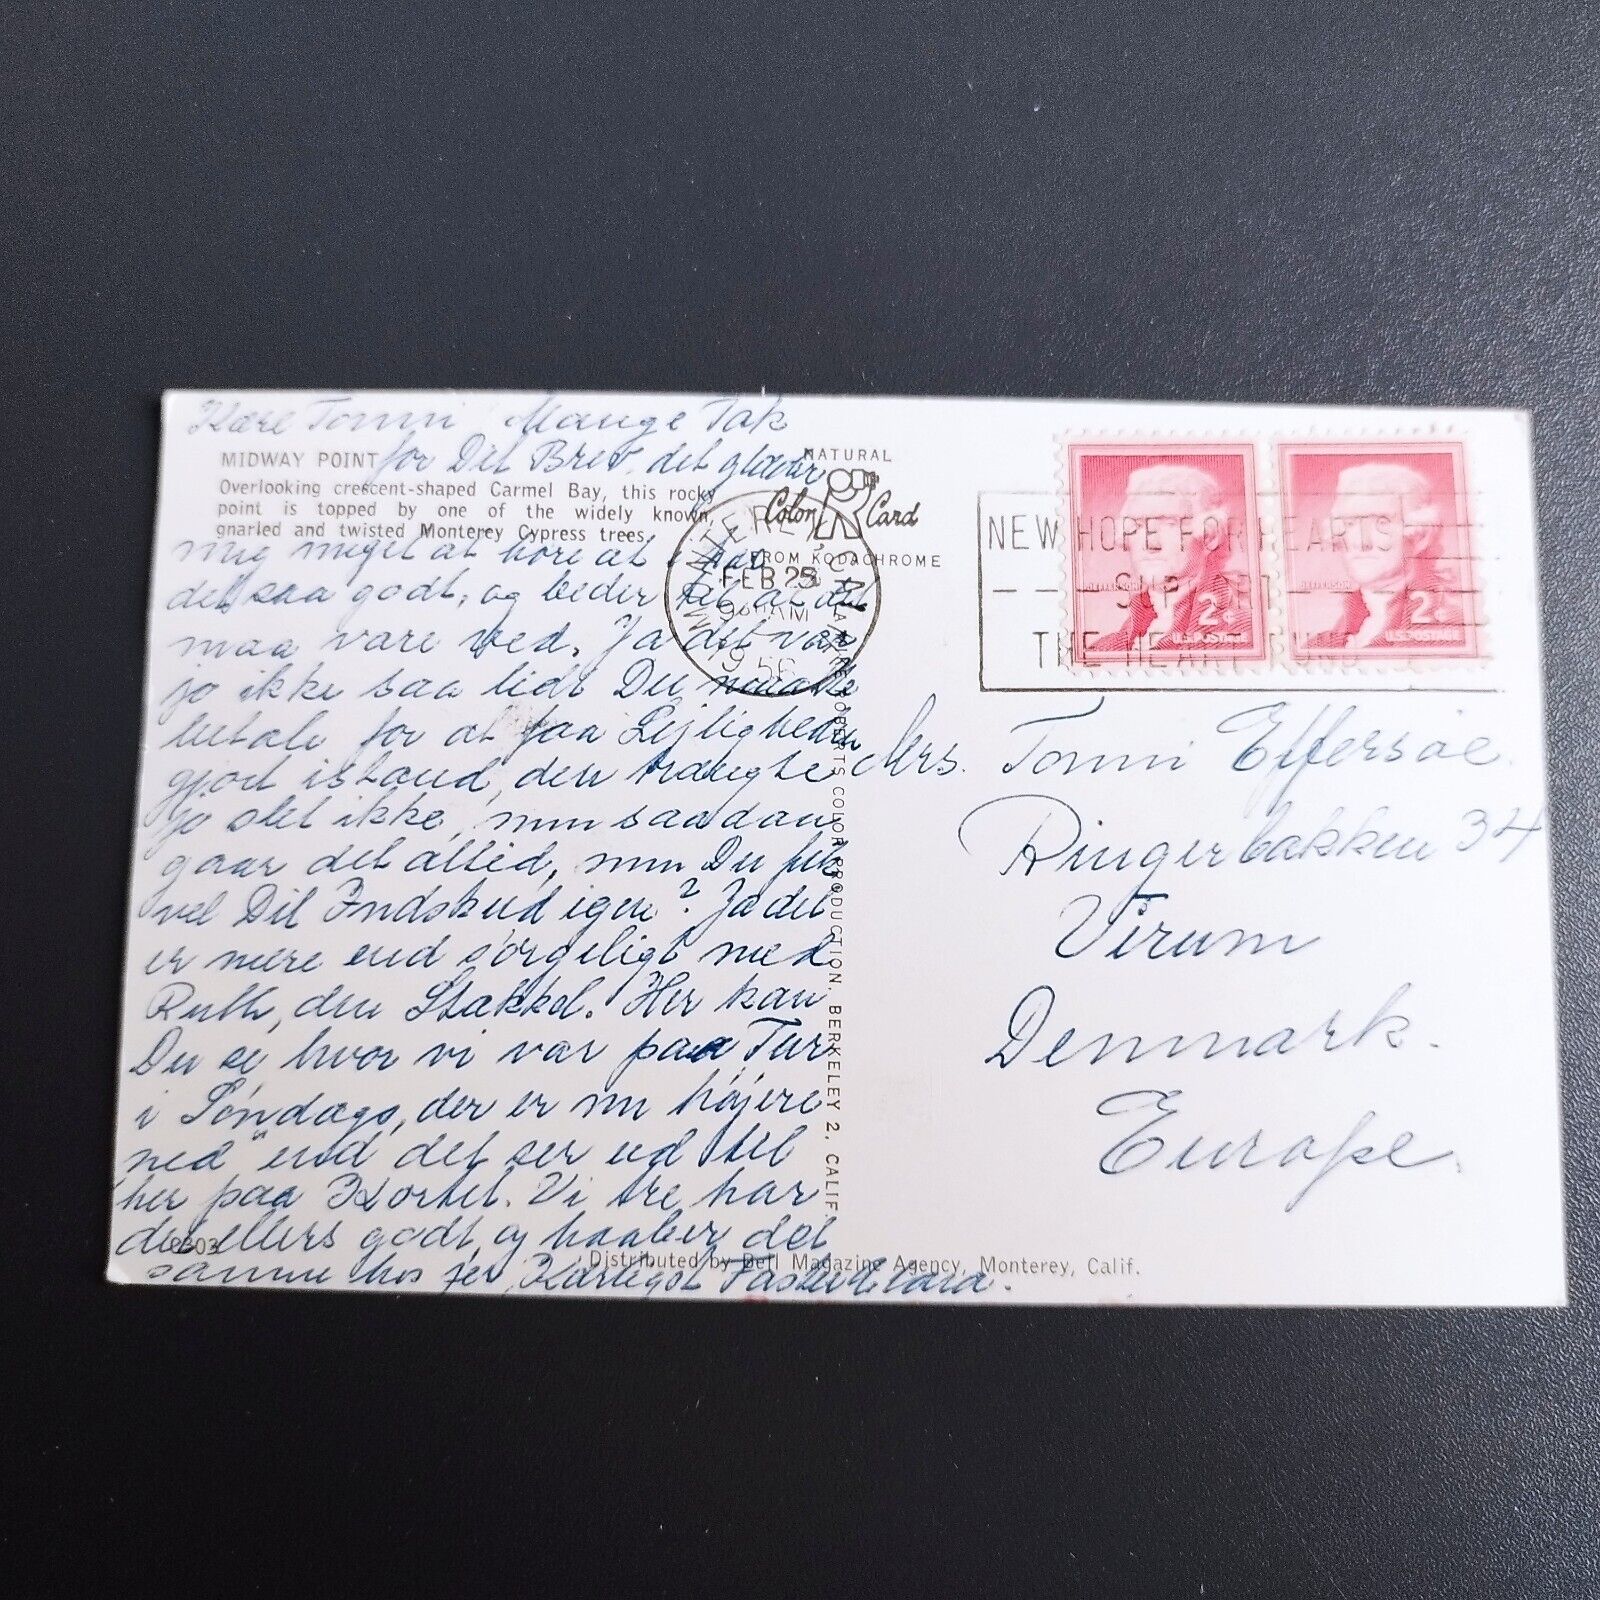 Kære Tonni Mange Tak
for Dit Brev, det glæder
MIDWAY POINT
Overlooking crescent-shaped Carmel Bay, this rocky
point is topped by one of the widely known,
gnarled and twisted Monterey Cypress trees.
mig meget at höre at i har
det saa godt, og beder til at det
maa vare ved. Ja det var
jo ikke saa lidt Du maatte
betale for at faa Lejligheden
gjort istand, den trængte
jo slet ikke, nun saadan
gaar det altid, nun Du fik
vel Dit Indskud igen? Ja det
er mere end sørgeligt med
Ruth, den Stakkel. Her kan
Du se hvor vi var paa Tur
i Søndags, der er nu højere
ned end det ser ud til
her paa Kortet. Vi tre har
det ellers godt, og haaber det
samme hos jer, Kærligst Faster Clara.
8303
Distributed by Bell Magazine Agency, Monterey, Calif.
NATURAL
Color Card
FROM KODACHROME
MONTEREY, CALIF.
FEB 25
AM
1956
MIKE ROBERTS COLOR PRODUCTION, BERKELEY 2, CALIF.
NEW HOPE FOR HEARTS
SUPPORT
THE HEART FUND
JEFFERSON
2¢
U.S. POSTAGE
JEFFERSON
2¢
U.S. POSTAGE
Mrs. Tonni Effersøe.
Ringerbakken 34
Virum
Denmark.
Europe.